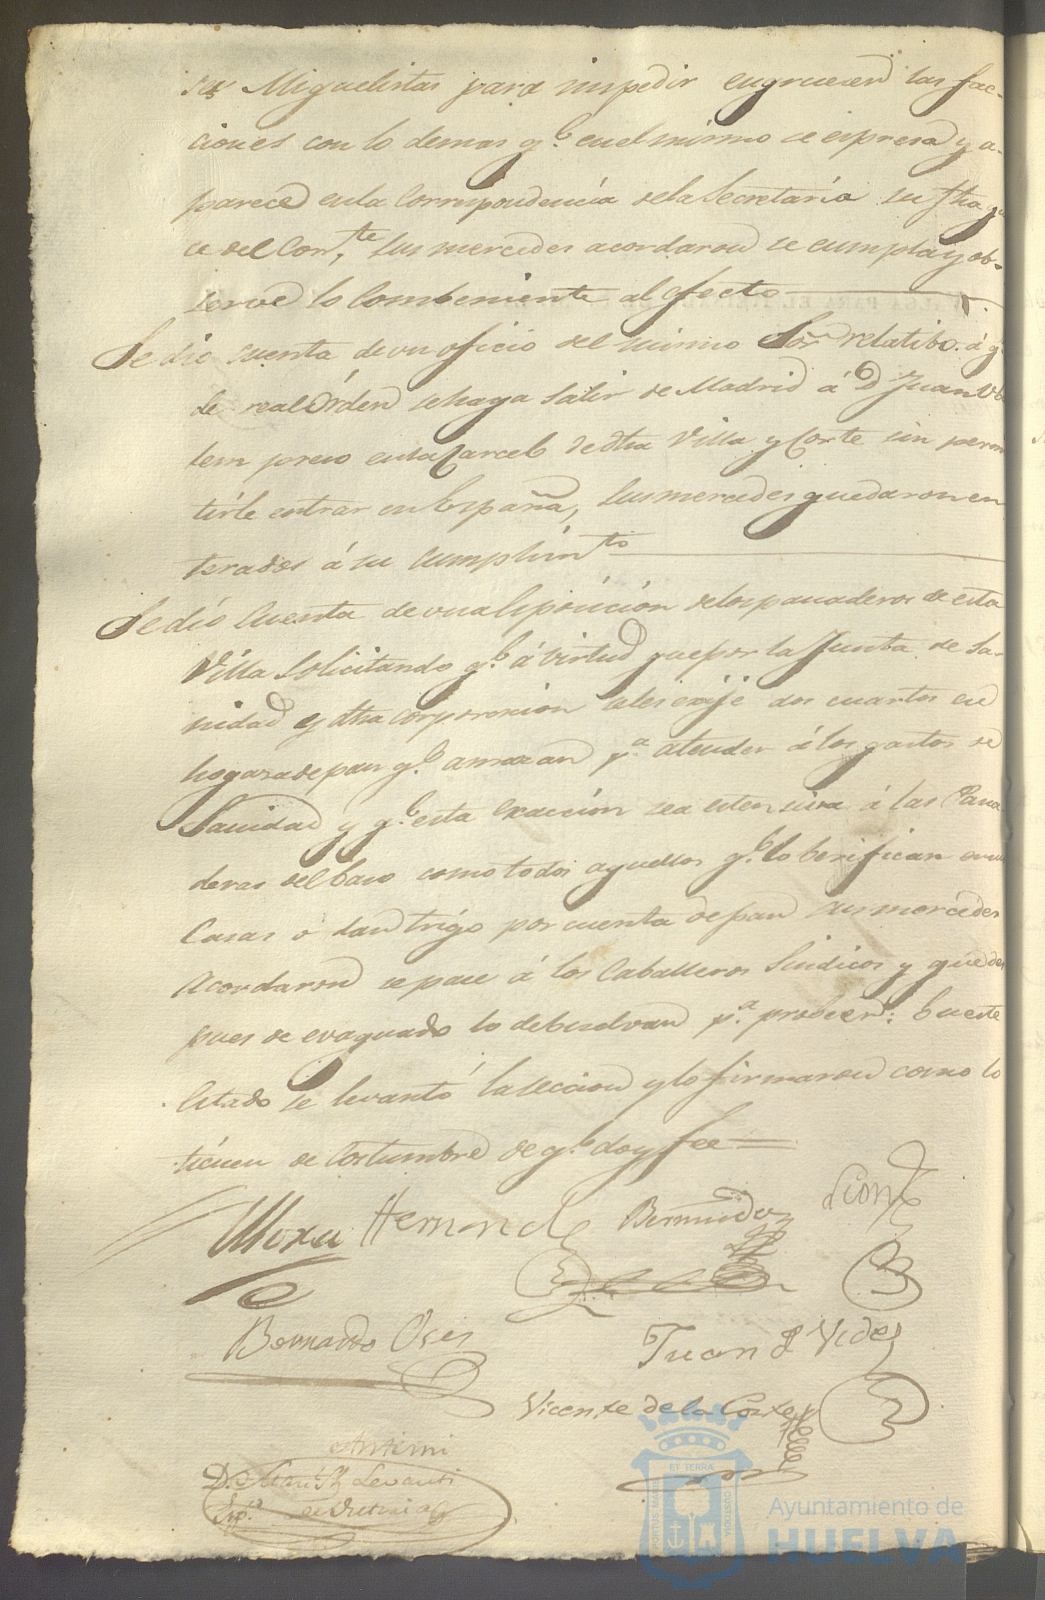 Miguelistas para impedir engruesen las fac-
ciones con lo demas q.e en el mismo se espresa y a-
parece en la Correspondencia de la Secretaría su fha
ce del Corr.te, sus mercedes acordaron se cumpla y ob-
serve lo combeniente al efecto
Se dio cuenta de un oficio del mismo Sor relatibo á q
de real Orden se haga salir de Madrid á D Juan
preso en la Carcel de dha Villa y Corte sin permi
tirle entrar en España, sus mercedes quedaron en
terados á su cumplim.to
Se dió Cuenta de una Esposición de los panaderos de esta
Villa solicitando q.e á virtud que por la Junta de Sa-
nidad y dha corporacion se les exije dos cuartos en
hogaza de pan q.e amasan p.a atender á los gastos de
Sanidad y q.e esta exaccion sea estensiva á las Pana
deras del baso como todos aquellos q.e lo berifican en su
Casas o dan trigo por cuenta de pan sus mercedes
Acordaron se pase á los Caballeros Sindicos y que des
pues de evaquado lo debuelvan p.a probeer: En este
Estado se levantó la seccion y lo firmaron como lo
tienen de Costumbre de q.e doy fee
Mora Hernand Bermudez
Bernardo Juan J Vides
Vicente de la Corte
Antemi
Ayuntamiento de
HUELVA